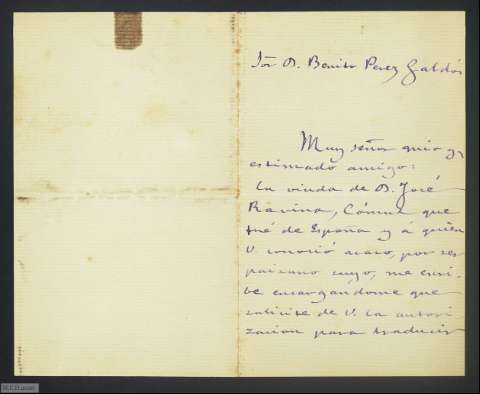 Sor D. Benito Perez Galdós
Muy señor mio y
estimado amigo:
La viuda de D. José
Ravina, Cónsul que
fué de España y á quien
V. conoció acaso, por ser
paisano suyo, me escri-
be encargandome que
solicite de V. la autori
zacion para traducir